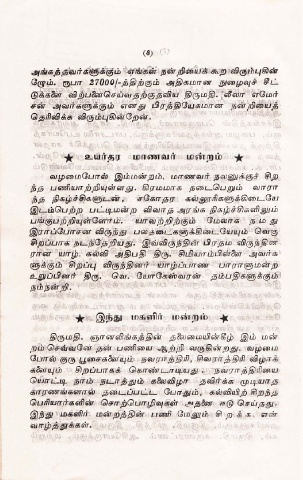 (8)
அங்கத்தவர்களுக்கும் எங்கள் நன்றியைக் கூற விரும்புகின்
றேம். ரூபா 27000/-த்திற்கும் அதிகமான நுழைவுச் சீட்
டுக்களை விற்பனைசெய்வதற்குதவிய திருமதி. லீலா எமேர்
சன் அவர்களுக்கும் எனது பிரத்தியேகமான நன்றியைத்
தெரிவிக்க விரும்புகின்றேன்.
★ உயர்தர மாணவர் மன்றம் ★
வழமைபோல் இம்மன்றம், மாணவர் நலனுக்குச் சிறந்
த பணியாற்றியுள்ளது. கிரமமாக நடைபெறும் வாரா
ந்த நிகழ்ச்சிகளுடன், சகோதர கல்லூரிகளுக்கிடையே
இடம்பெற்ற பட்டிமன்ற விவாத அரங்க நிகழ்ச்சிகளிலும்
பங்குபற்றியுள்ளோம். யாவற்றிற்கும் மேலாக நமது
இராப்போசன விருந்து பலதடைகளுக்கிடையேயும் வெகு
சிறப்பாக நடந்தேறியது. இவ்விருந்தின் பிரதம விருந்தின
ரான யாழ். கல்வி அதிபதி திரு. சிமியாம்பிள்ளை அவர்க
ளுக்கும் சிறப்பு விருந்தினர் யாழ்ப்பாண பாராளுமன்ற
உறுப்பினர் திரு. வெ. யோகேஸ்வரன் தம்பதிகளுக்கும்
நம்நன்றி.
★ இந்து மகளிர் மன்றம் ★
திருமதி. ஞானலிங்கத்தின் தலைமையின்கீழ் இம் மன்
றம்செவ்வனே தன் பணியை ஆற்றி வருகின்றது. வழமை
போல் குரு பூசைகளையும் நவராத்திரி, சிவராத்திரி விழாக்
களையும் சிறப்பாகக் கொண்டாடியது. நவராத்திரியை
யொட்டி நாம் நடாத்தும் கலைவிழா தவிர்க்க முடியாத
காரணங்களால் தடைப்பட்ட போதும், கல்வியிற் சிறந்த
பெரியார்களின் சொற்பொழிவுகள் அதனை ஈடு செய்தது.
இந்து மகளிர் மன்றத்தின் பணி மேலும் சிறக்க என்
வாழ்த்துக்கள்.